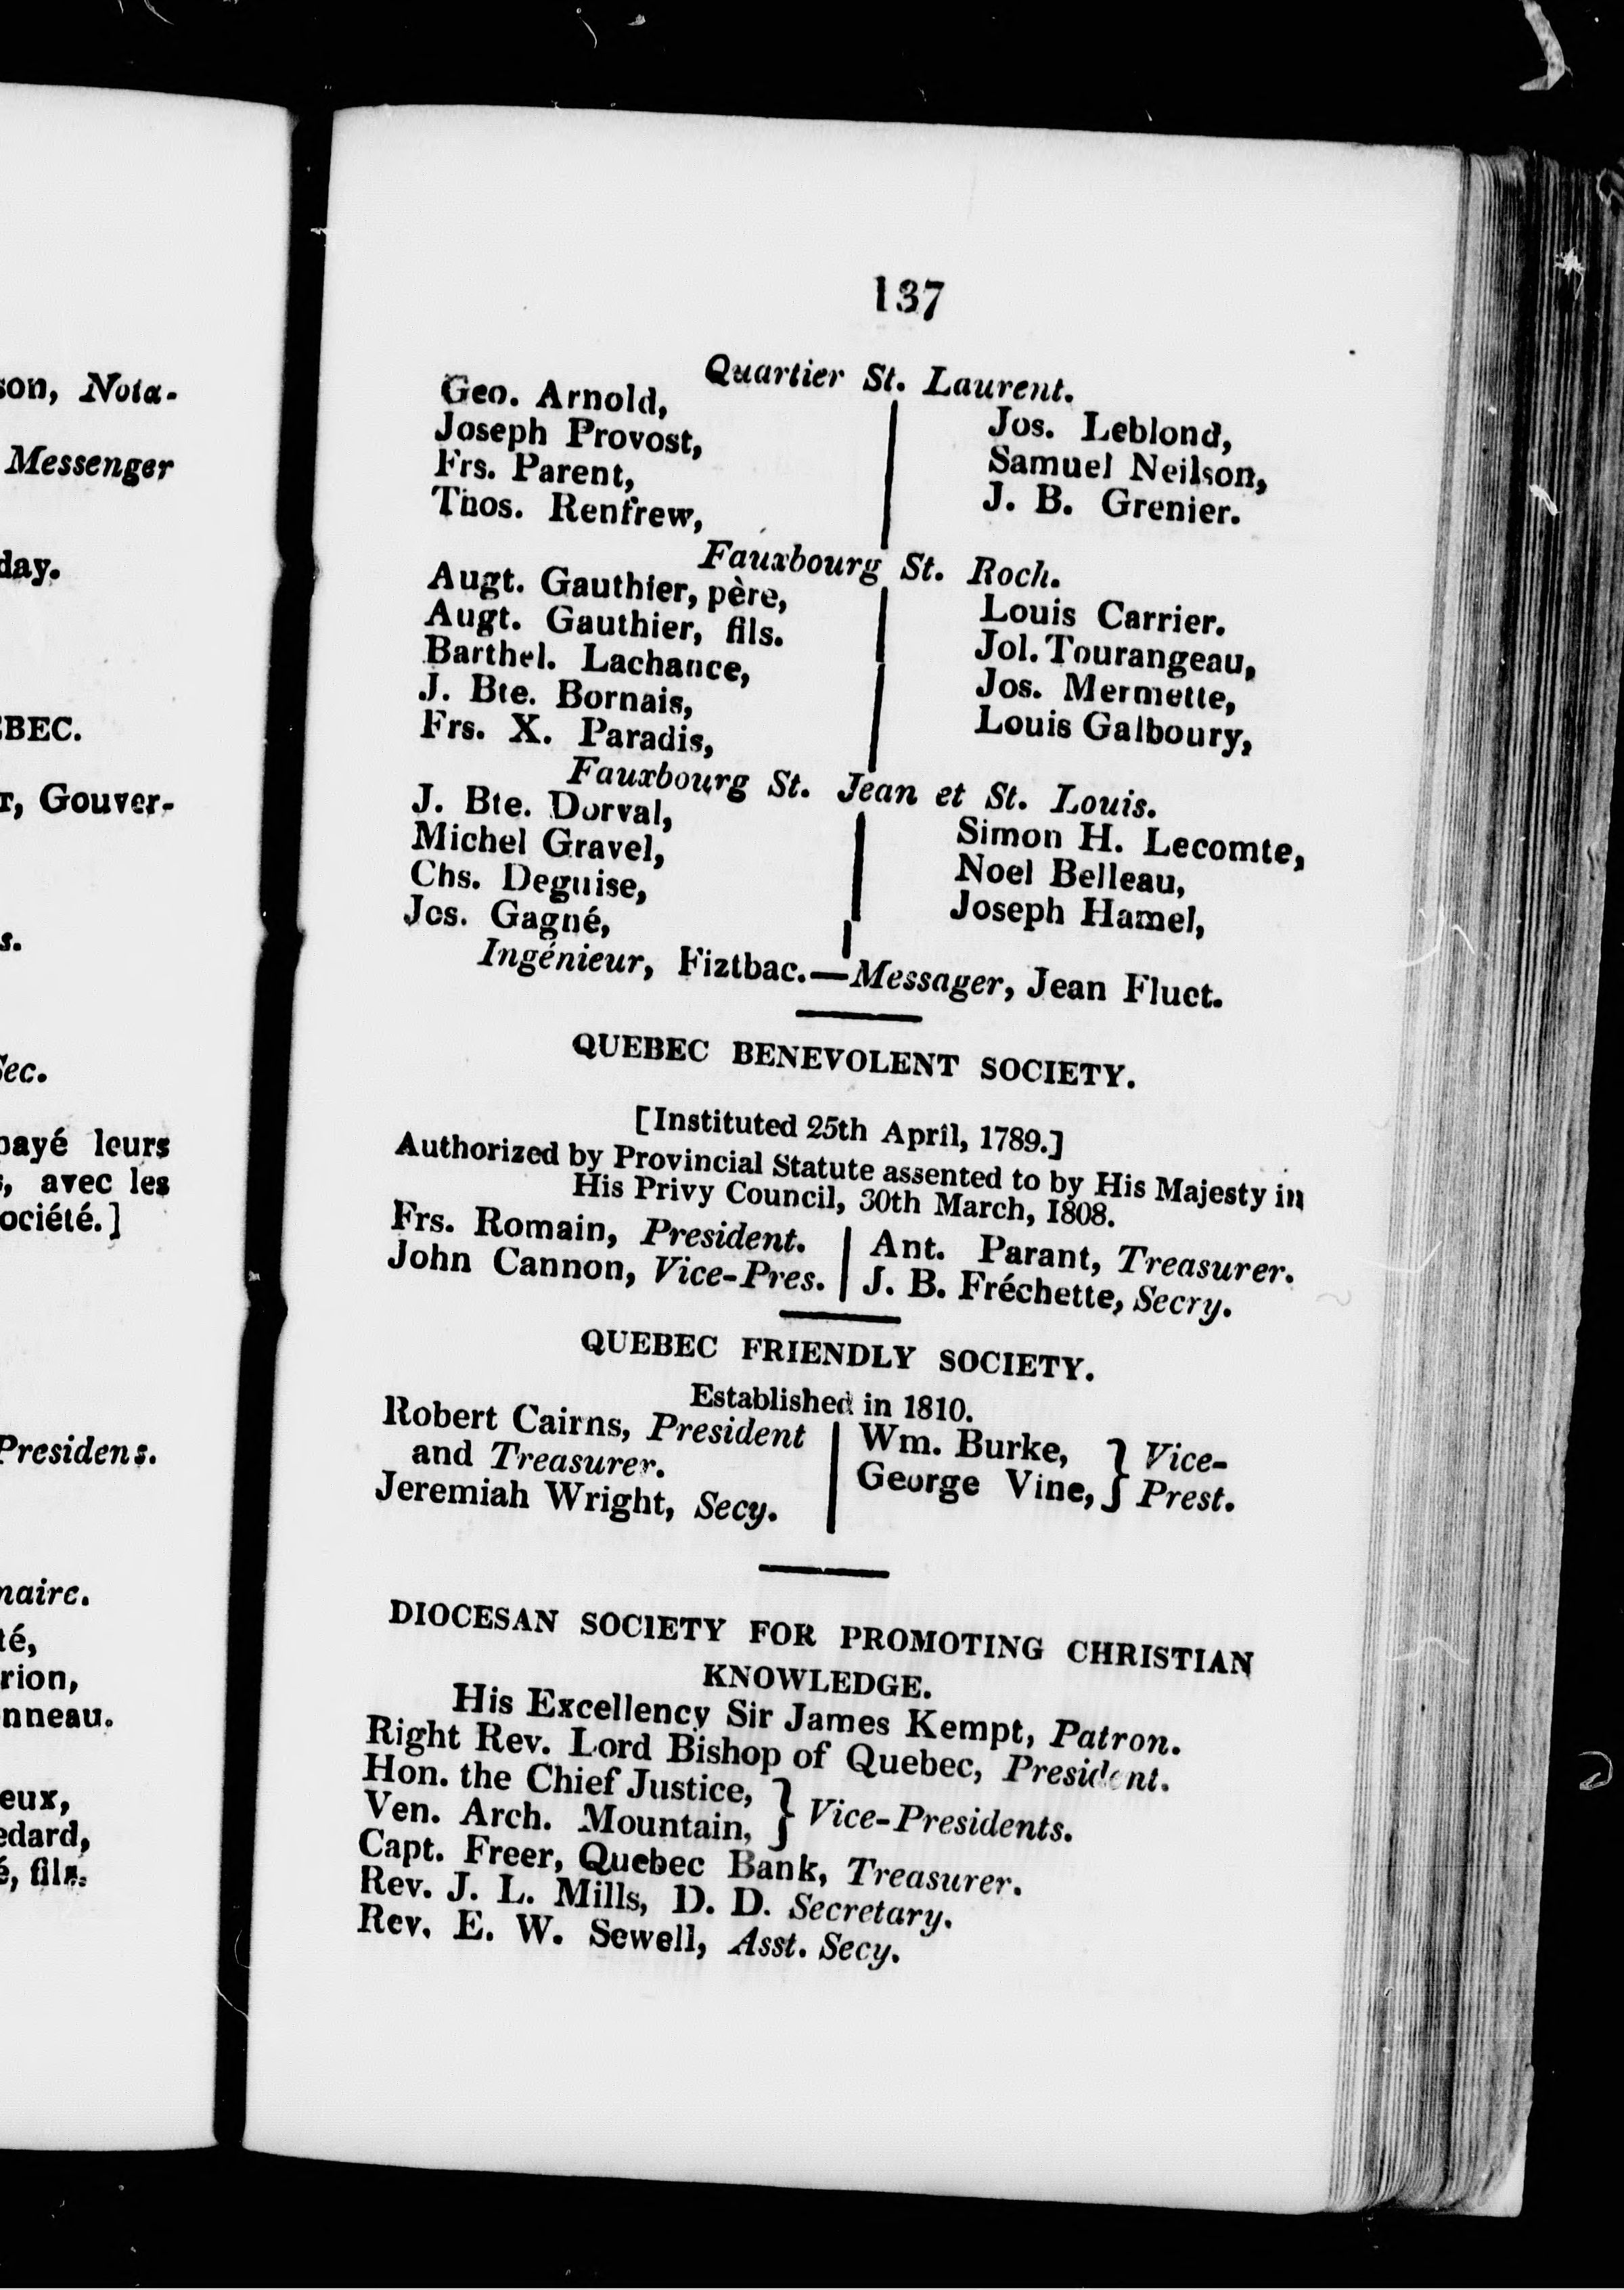 son, Nota-
Messenger
day.
BEC.
r, Gouver-
s.
Sec.
payé leurs
s, avec les
ociété.]
Presidens.
naire.
té,
rion,
nneau.
eux,
edard,
é, fils.
137
Quartier St. Laurent.
Geo. Arnold,
Joseph Provost,
Frs. Parent,
Thos. Renfrew,
Jos. Leblond,
Samuel Neilson,
J. B. Grenier.
Fauxbourg St. Roch.
Augt. Gauthier, père,
Augt. Gauthier, fils.
Barthel. Lachance,
J. Bte. Bornais,
Frs. X. Paradis,
Louis Carrier.
Jol. Tourangeau,
Jos. Mermette,
Louis Galboury,
Fauxbourg St. Jean et St. Louis.
J. Bte. Dorval,
Michel Gravel,
Chs. Deguise,
Jos. Gagné,
Simon H. Lecomte,
Noel Belleau,
Joseph Hamel,
Ingénieur, Fiztbac.—Messager, Jean Fluet.
QUEBEC BENEVOLENT SOCIETY.
[Instituted 25th April, 1789.]
Authorized by Provincial Statute assented to by His Majesty in
His Privy Council, 30th March, 1808.
Frs. Romain, President.
John Cannon, Vice-Pres.
Ant. Parant, Treasurer.
J. B. Fréchette, Secry.
QUEBEC FRIENDLY SOCIETY.
Established in 1810.
Robert Cairns, President
and Treasurer.
Jeremiah Wright, Secy.
Wm. Burke, } Vice-
George Vine, } Prest.
DIOCESAN SOCIETY FOR PROMOTING CHRISTIAN
KNOWLEDGE.
His Excellency Sir James Kempt, Patron.
Right Rev. Lord Bishop of Quebec, President.
Hon. the Chief Justice,
Ven. Arch. Mountain, } Vice-Presidents.
Capt. Freer, Quebec Bank, Treasurer.
Rev. J. L. Mills, D. D. Secretary.
Rev. E. W. Sewell, Asst. Secy.